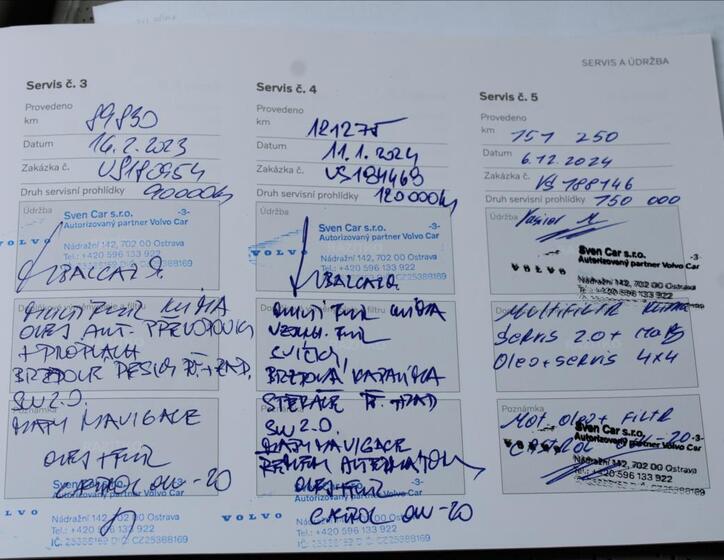 SERVIS A ÚDRŽBA
Servis č. 3
Provedeno
km 89830
Datum 16.2.2023
Zakázka č. VS180954
Druh servisní prohlídky 90000km
Údržba
Sven Car s.r.o. -3-
Autorizovaný partner Volvo Car
VOLVO
Nádražní 142, 702 00 Ostrava
Tel.: +420 596 133 922
BALCAR
MULTI FILTR KLIMA
OLEJ AUT. PŘEVODOVKY
+ PROPLACH
SW 2.0.
Poznámka
MAPY NAVIGACE
OLEJ + FILTR
CASTROL 0W-20
Autorizovaný partner Volvo Car
VOLVO
Nádražní 142, 702 00 Ostrava
Tel.: +420 596 133 922
IČ: 25388169 DIČ: CZ25388169
Servis č. 4
Provedeno
km 121275
Datum 11.1.2024
Zakázka č. VS184463
Druh servisní prohlídky 120000km
Údržba
Sven Car s.r.o. -3-
Autorizovaný partner Volvo Car
VOLVO
Nádražní 142, 702 00 Ostrava
Tel.: +420 596 133 922
BALCAR
MULTI FILTR KLIMA
VZDUCH. FILTR
SVÍČKY
BRZDOVÁ KAPALINA
STĚRAČE PŘ. + ZAD
SW 2.0.
MAPY NAVIGACE
ŘEMEN ALTERNÁTORU
OLEJ + FILTR
CASTROL 0W-20
Autorizovaný partner Volvo Car
VOLVO
Nádražní 142, 702 00 Ostrava
Tel.: +420 596 133 922
IČ: 25388169 DIČ: CZ25388169
Servis č. 5
Provedeno
km 151 250
Datum 6.12.2024
Zakázka č. VS 188146
Druh servisní prohlídky 150 000
Údržba
Sven Car s.r.o. -3-
Autorizovaný partner Volvo Car
VOLVO
Nádražní 142, 702 00 Ostrava
Tel.: +420 596 133 922
Multifiltr klima
Servis 2.0 + Mapy
Olej + servis 4x4
Poznámka
Mot. olej + Filtr
CASTROL 0W-20
Sven Car s.r.o. -3-
Autorizovaný partner Volvo Car
VOLVO
Nádražní 142, 702 00 Ostrava
Tel.: +420 596 133 922